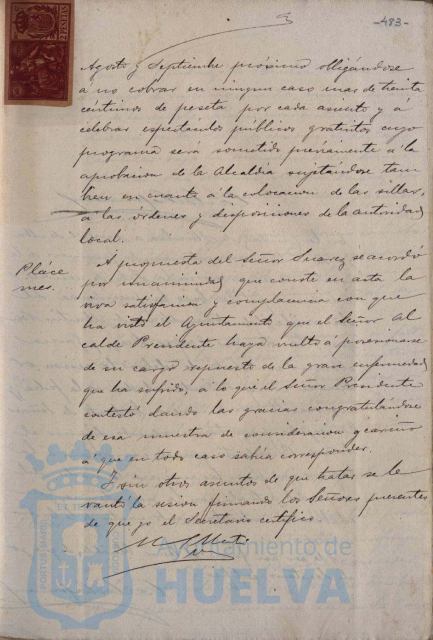 -483-
Agosto y Septiembre próximo obligándose
a no cobrar en ningun caso mas de treinta
céntimos de peseta por cada asiento y á
celebrar espectáculos públicos gratuitos cuyo
programa será sometido préviamente á la
aprobacion de la Alcaldia sujetándose tam
bien en cuanto á la colocacion de las sillas,
á las órdenes y disposiciones de la autoridad
local.
Pláce
mes.
A propuesta del Señor Suarez se acordó
por unanimidad que conste en acta la
viva satisfaccion y complacencia con que
ha visto el Ayuntamiento que el Señor Al
calde Presidente haya vuelto á posesionarse
de su cargo repuesto de la gran enfermedad
que ha sufrido, á lo que el Señor Presidente
contestó dando las gracias congratulándose
de esa muestra de consideracion y cariño
á que en todo caso sabria corresponder.
Y sin otros asuntos de que tratar se le
vantó la sesion firmando los Señores presentes
de que yo el Secretario certifico.
Ayuntamiento de
HUELVA